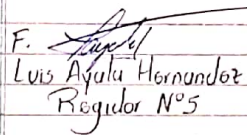 F.
Luis Ayala Hernandez
Regidor Nº5